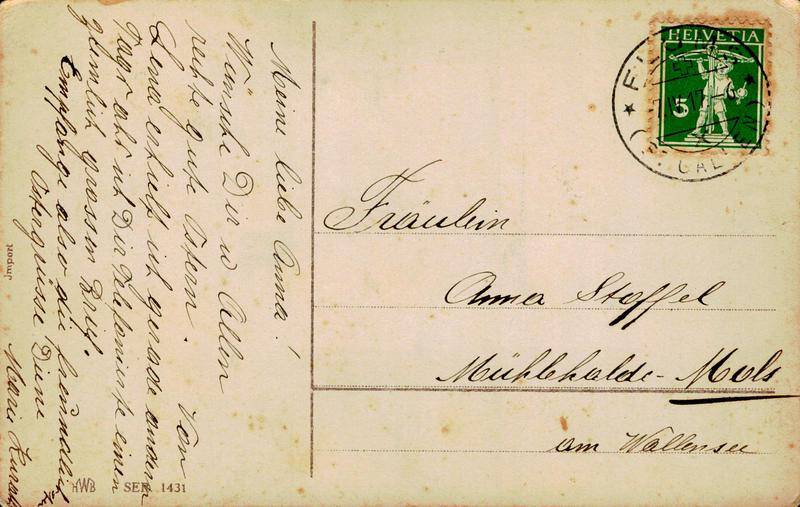 Meine liebe Anna!
Wünsche Dir u Allen
rechte gute Ostern. Von
Lena erhielt ich gerade andern
Tags als ich Dir telefonierte einen
ziemlich grossen Brief.
Empfange also die freundlich
Ostergrüsse Deine
Marie
Import
HWB SER 1431
HELVETIA
5
FLUMS
17
(ST. GALLEN)
Fräulein
Anna Stoffel
Mühlehalde-Mols
am Wallensee